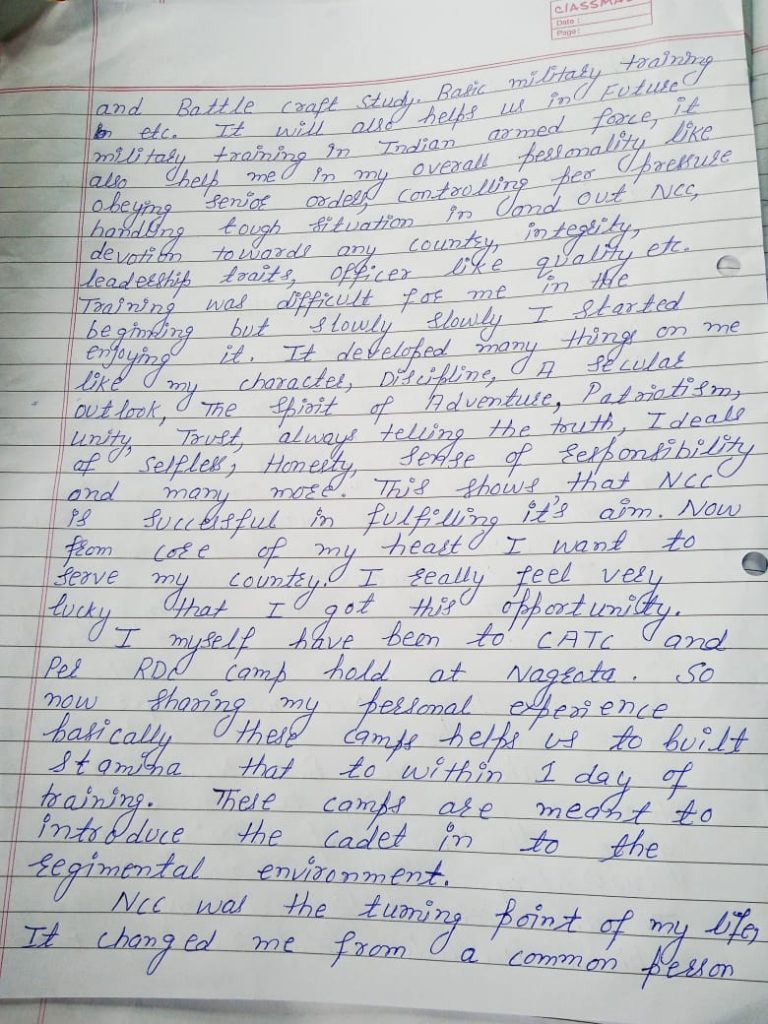 CLASSMATE
Date :
Page :
and Battle craft study. Basic military training
etc. It will also helps us in Future
military training in Indian armed force, it
also help me in my overall personality like
obeying senior orders, controlling per pressure
handling tough situation in and out NCC,
devotion towards any country, integrity,
leadership traits, officer like quality etc.
Training was difficult for me in the
beginning but slowly slowly I started
enjoying it. It developed many things on me
like my character, Discipline, A secular
outlook, The spirit of Adventure, Patriotism,
unity, Trust, always telling the truth, Ideals
of selfless, Honesty, sense of responsibility
and many more. This shows that NCC
is successful in fulfilling it's aim. Now
from core of my heart I want to
serve my country. I really feel very
lucky that I got this opportunity.
I myself have been to CATC and
Per RDC camp hold at Nagrota. So
now sharing my personal experience
basically these camps helps us to built
stamina that to within 1 day of
training. These camps are meant to
introduce the cadet in to the
regimental environment.
NCC was the turning point of my life,
It changed me from a common person